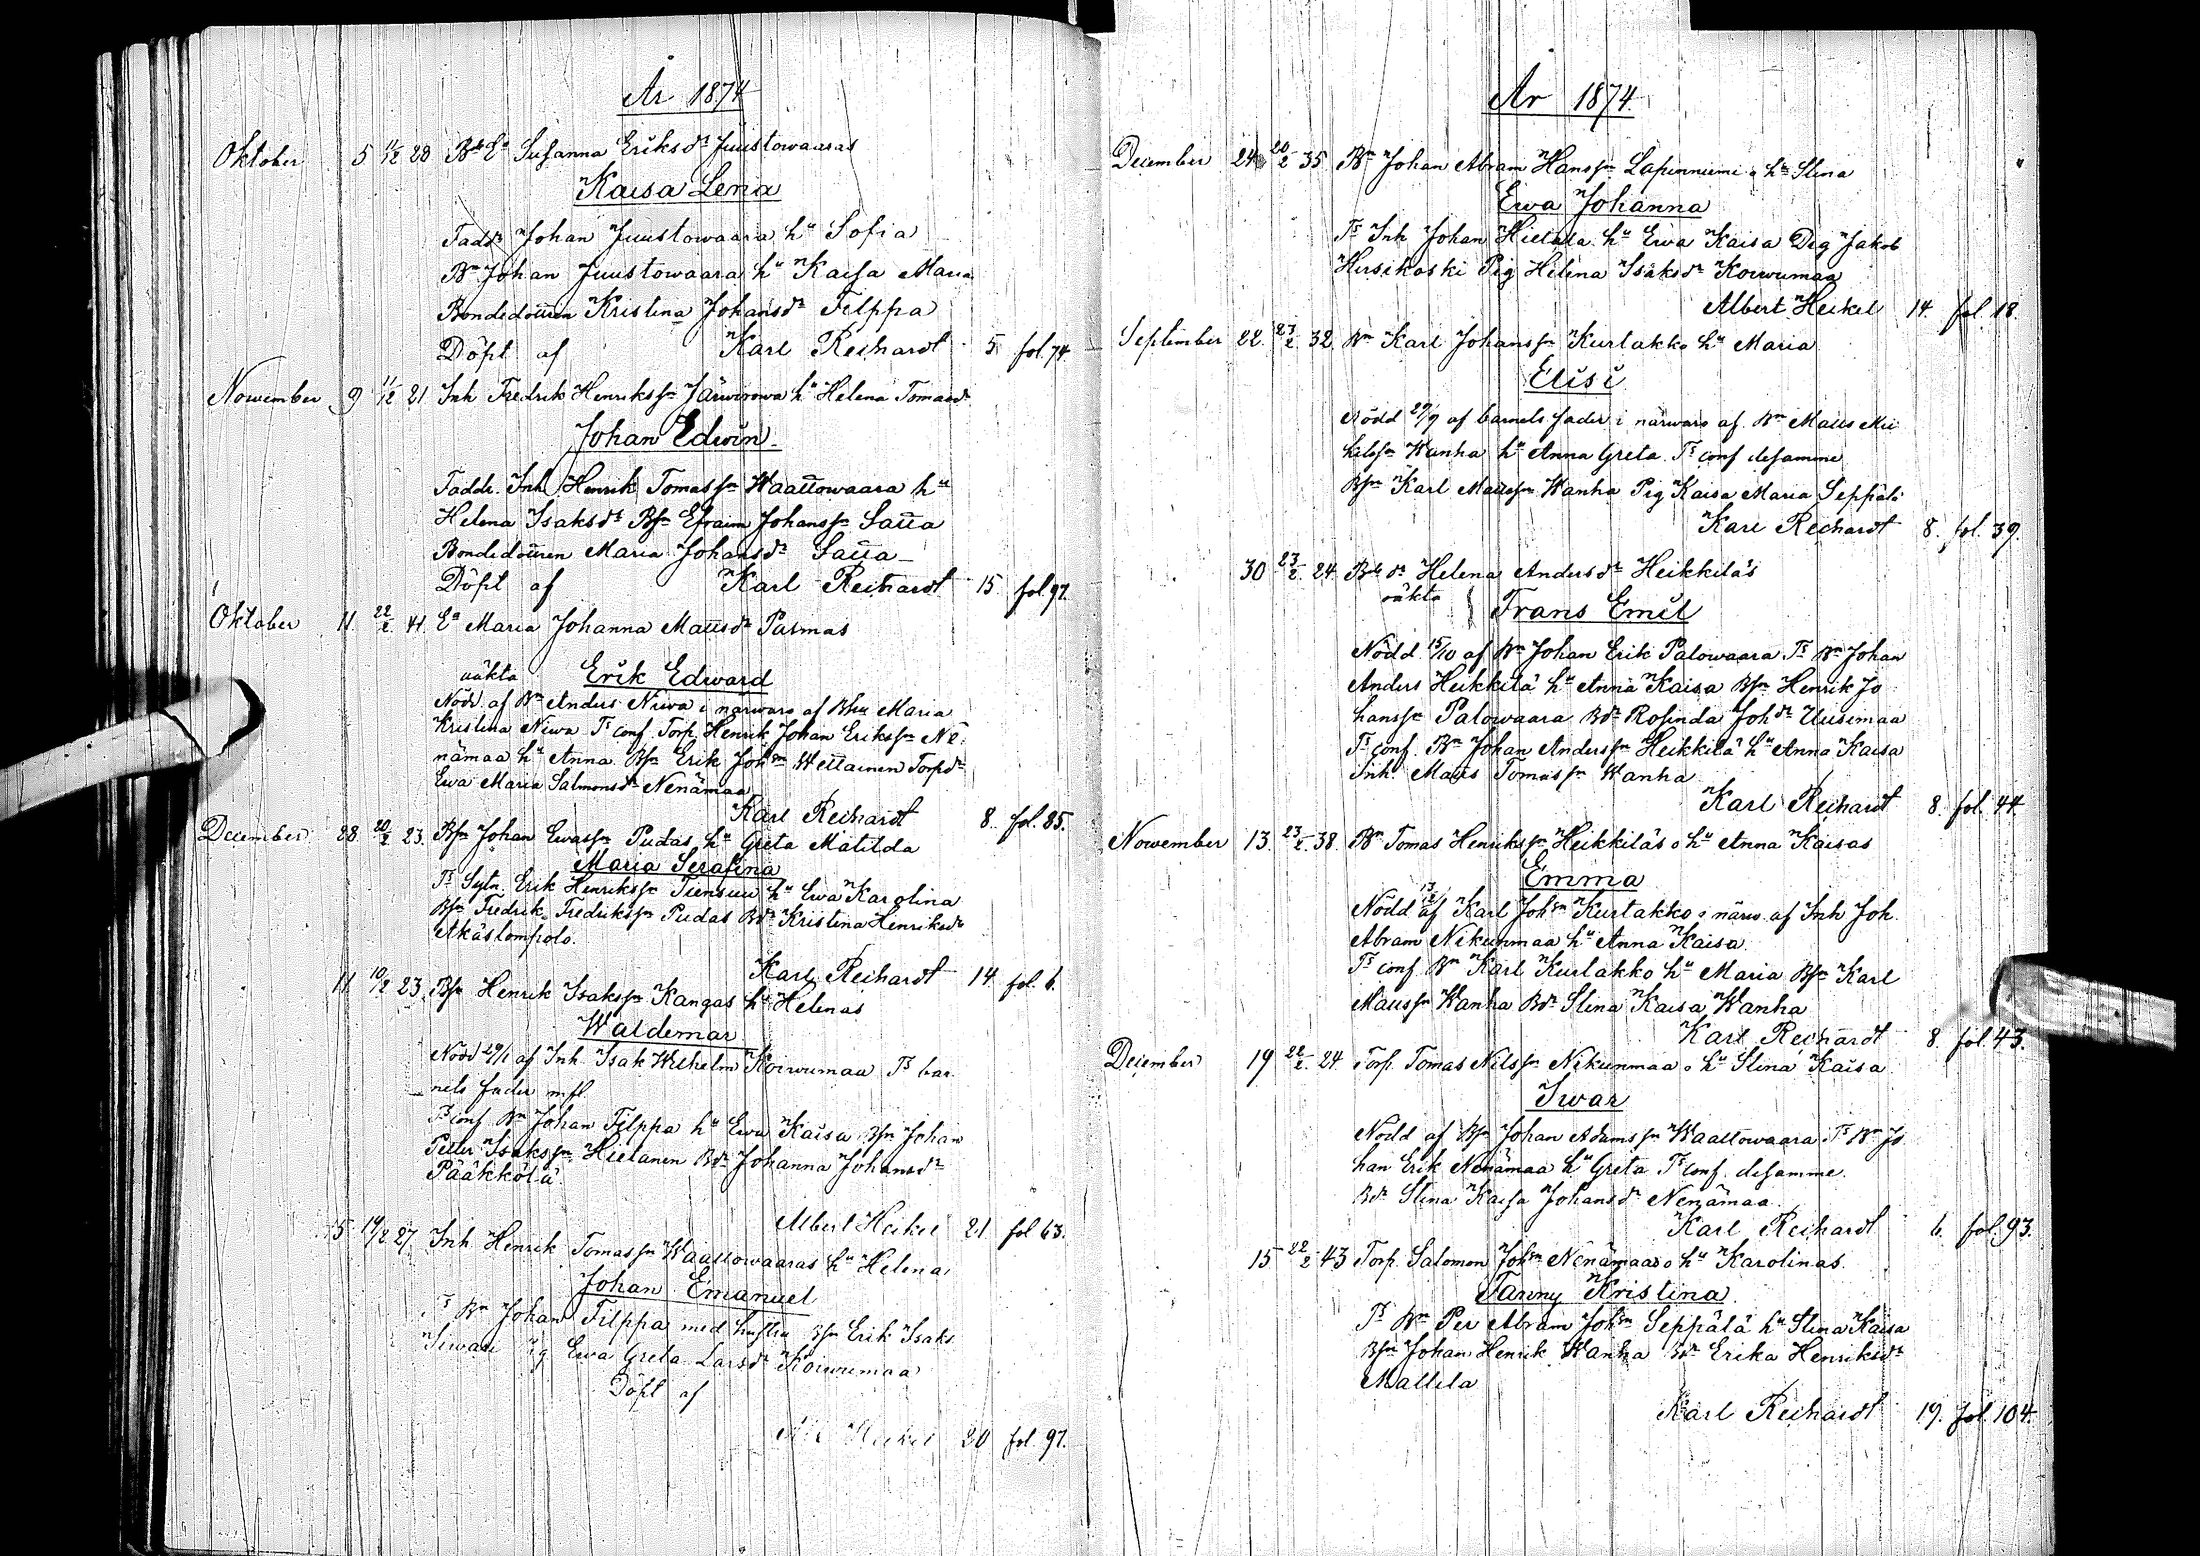 År 1874
Oktober 5 11/12 28 Bdr Ea Susanna Eriksdr Juustowaaras
Kaisa Lena
Faddr Johan Juustowaara hu Sofia
Bn Johan Juustowaara hu Kaisa Maria
Bondedottren Kristina Johansdr Filppa
Döpt af Karl Reihardt 5 fol 74
November 9 11/12 21 Inh Fredrik Henrikssn Järwirowa hu Helena Tomasdr
Johan Edwin
Faddr. Inh Henrik Tomassn Waattowaara hu
Helena Isaksdr Bsn Efraim Johanssn Satta
Bondedottren Maria Johansdr Satta
Döpt af Karl Reihardt 15 fol 97.
Oktober 11. 22/2 41. Ea Maria Johanna Mattsdr Pasmas
oäkta Erik Edward
Nödd. af Bn Anders Niwa i närwaro af Bhu Maria
Kristina Niwa Ts conf. Torp. Henrik Johan Erikssn Ne-
nämaa hu Anna Bsn Erik Johsn Wettainen Torpdr
Ewa Maria Salmonsdr Nenämaa
Karl Reihardt 8. fol. 85.
December 28 20/2 23. Bsn Johan Ewassn Pudas hu Greta Matilda
Maria Serafina
Ts Sytn. Erik Henrikssn Tiensuu hu Ewa Karolina
Bsn Fredrik Fredrikssn Pudas Bdr Kristina Henriksdr
Äkäslompolo.
Karl Reihardt 14 fol. 6.
11 10/2 23. Bsn Henrik Isakssn Kangas hu Helenas
Waldemar
Nödd 29/1 af Inh Isak Wilhelm Koiwumaa Ts bar-
nets fader m.fl.
Ts conf Bn Johan Filppa hu Ewa Kaisa Bsn Johan
Petter Isakssn Hietanen Bdr Johanna Johansdr
Pääkkölä
Albert Heikel 21 fol 63.
5 19/2 27 Inh Henrik Tomassn Waattowaaras hu Helena
Johan Emanuel
Ts Bn Johan Filppa med hustru Bsn Erik Isaks
Siwari Ewa Greta Larsdr Koiwumaa
Döpt af
Heikel 20 fol. 97.
År 1874.
December 24 20/2 35 Bn Johan Abram Hanssn Lapinniemi o hu Stina
Ewa Johanna
Ts Inh Johan Hietala hu Ewa Kaisa Drg Jakob
Hirsikoski Pig Helena Isaksdr Koiwumaa
Albert Heikel 14. fol. 18.
September 22. 23/2 32. Bn Karl Johanssn Kurtakko hu Maria
Elisi
Nödd 27/9 af barnets fader i närwaro af Bn Matts Mic-
kelssn Wanha hu Anna Greta. Ts conf desamme
Bsn Karl Mattssn Wanha Pig Kaisa Maria Seppälä
Karl Reihardt 8. fol. 39.
30 23/2 24. Bdr Helena Andersdr Heikkiläs
oäkta Frans Emil
Nödd 15/10 af Bn Johan Erik Palowaara Ts Bn Johan
Anders Heikkilä hu Anna Kaisa Bsn Henrik Jo-
hanssn Palowaara Bdr Rosinda Johdr Uusimaa
Ts conf. Bn Johan Anderssn Heikkilä hu Anna Kaisa
Inh. Matts Tomassn Wanha
Karl Reihardt 8. fol. 44.
November 13. 23/2 38. Bn Tomas Henrikssn Heikkiläs o hu Anna Kaisas
Emma
Nödd 13/12 af Karl Johsn Kurtakko i närw. af Inh Joh.
Abram Nikunmaa hu Anna Kaisa
Ts conf Bn Karl Kurtakko hu Maria Bsn Karl
Mattssn Wanha Bdr Stina Kaisa Wanha
Karl Reihardt 8. fol 43.
December 19 22/2 24 Torp. Tomas Nilssn Nikunmaa o hu Stina Kaisa
Iwar
Nödd af Bsn Johan Adamssn Waattowaara. Ts Bn Jo-
han Erik Nenämaa hu Greta Ts conf. desamme.
Bdr Stina Kaisa Johansdr Nenämaa
Karl Reihardt 6. fol. 93.
15 22/2 43 Torp. Salomon Johsn Nenämaas o hu Karolinas
Fanny Kristina
Ts Bn Per Abram Johsn Seppälä hu Stina Kaisa
Bsn Johan Henrik Wanha Bdr Erika Henriksdr
Mattila
Karl Reihardt 19. fol. 104.